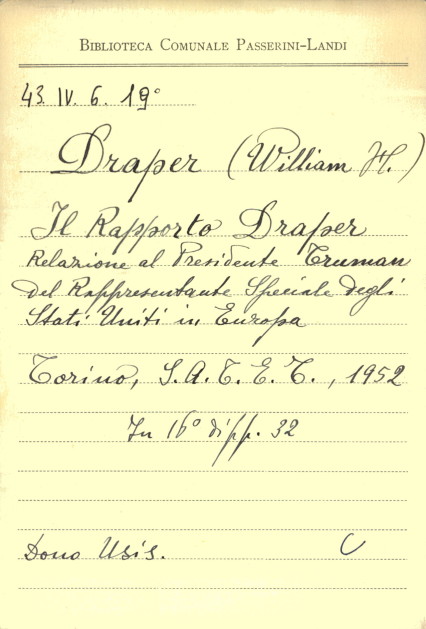 BIBLIOTECA COMUNALE PASSERINI-LANDI
43. IV. 6. 19°
Draper (William H.)
Il Rapporto Draper
Relazione al Presidente Truman
del Rappresentante Speciale degli
Stati Uniti in Europa
Torino, S.A.T.E.T., 1952
In 16° di pp. 32
Dono Usis. C